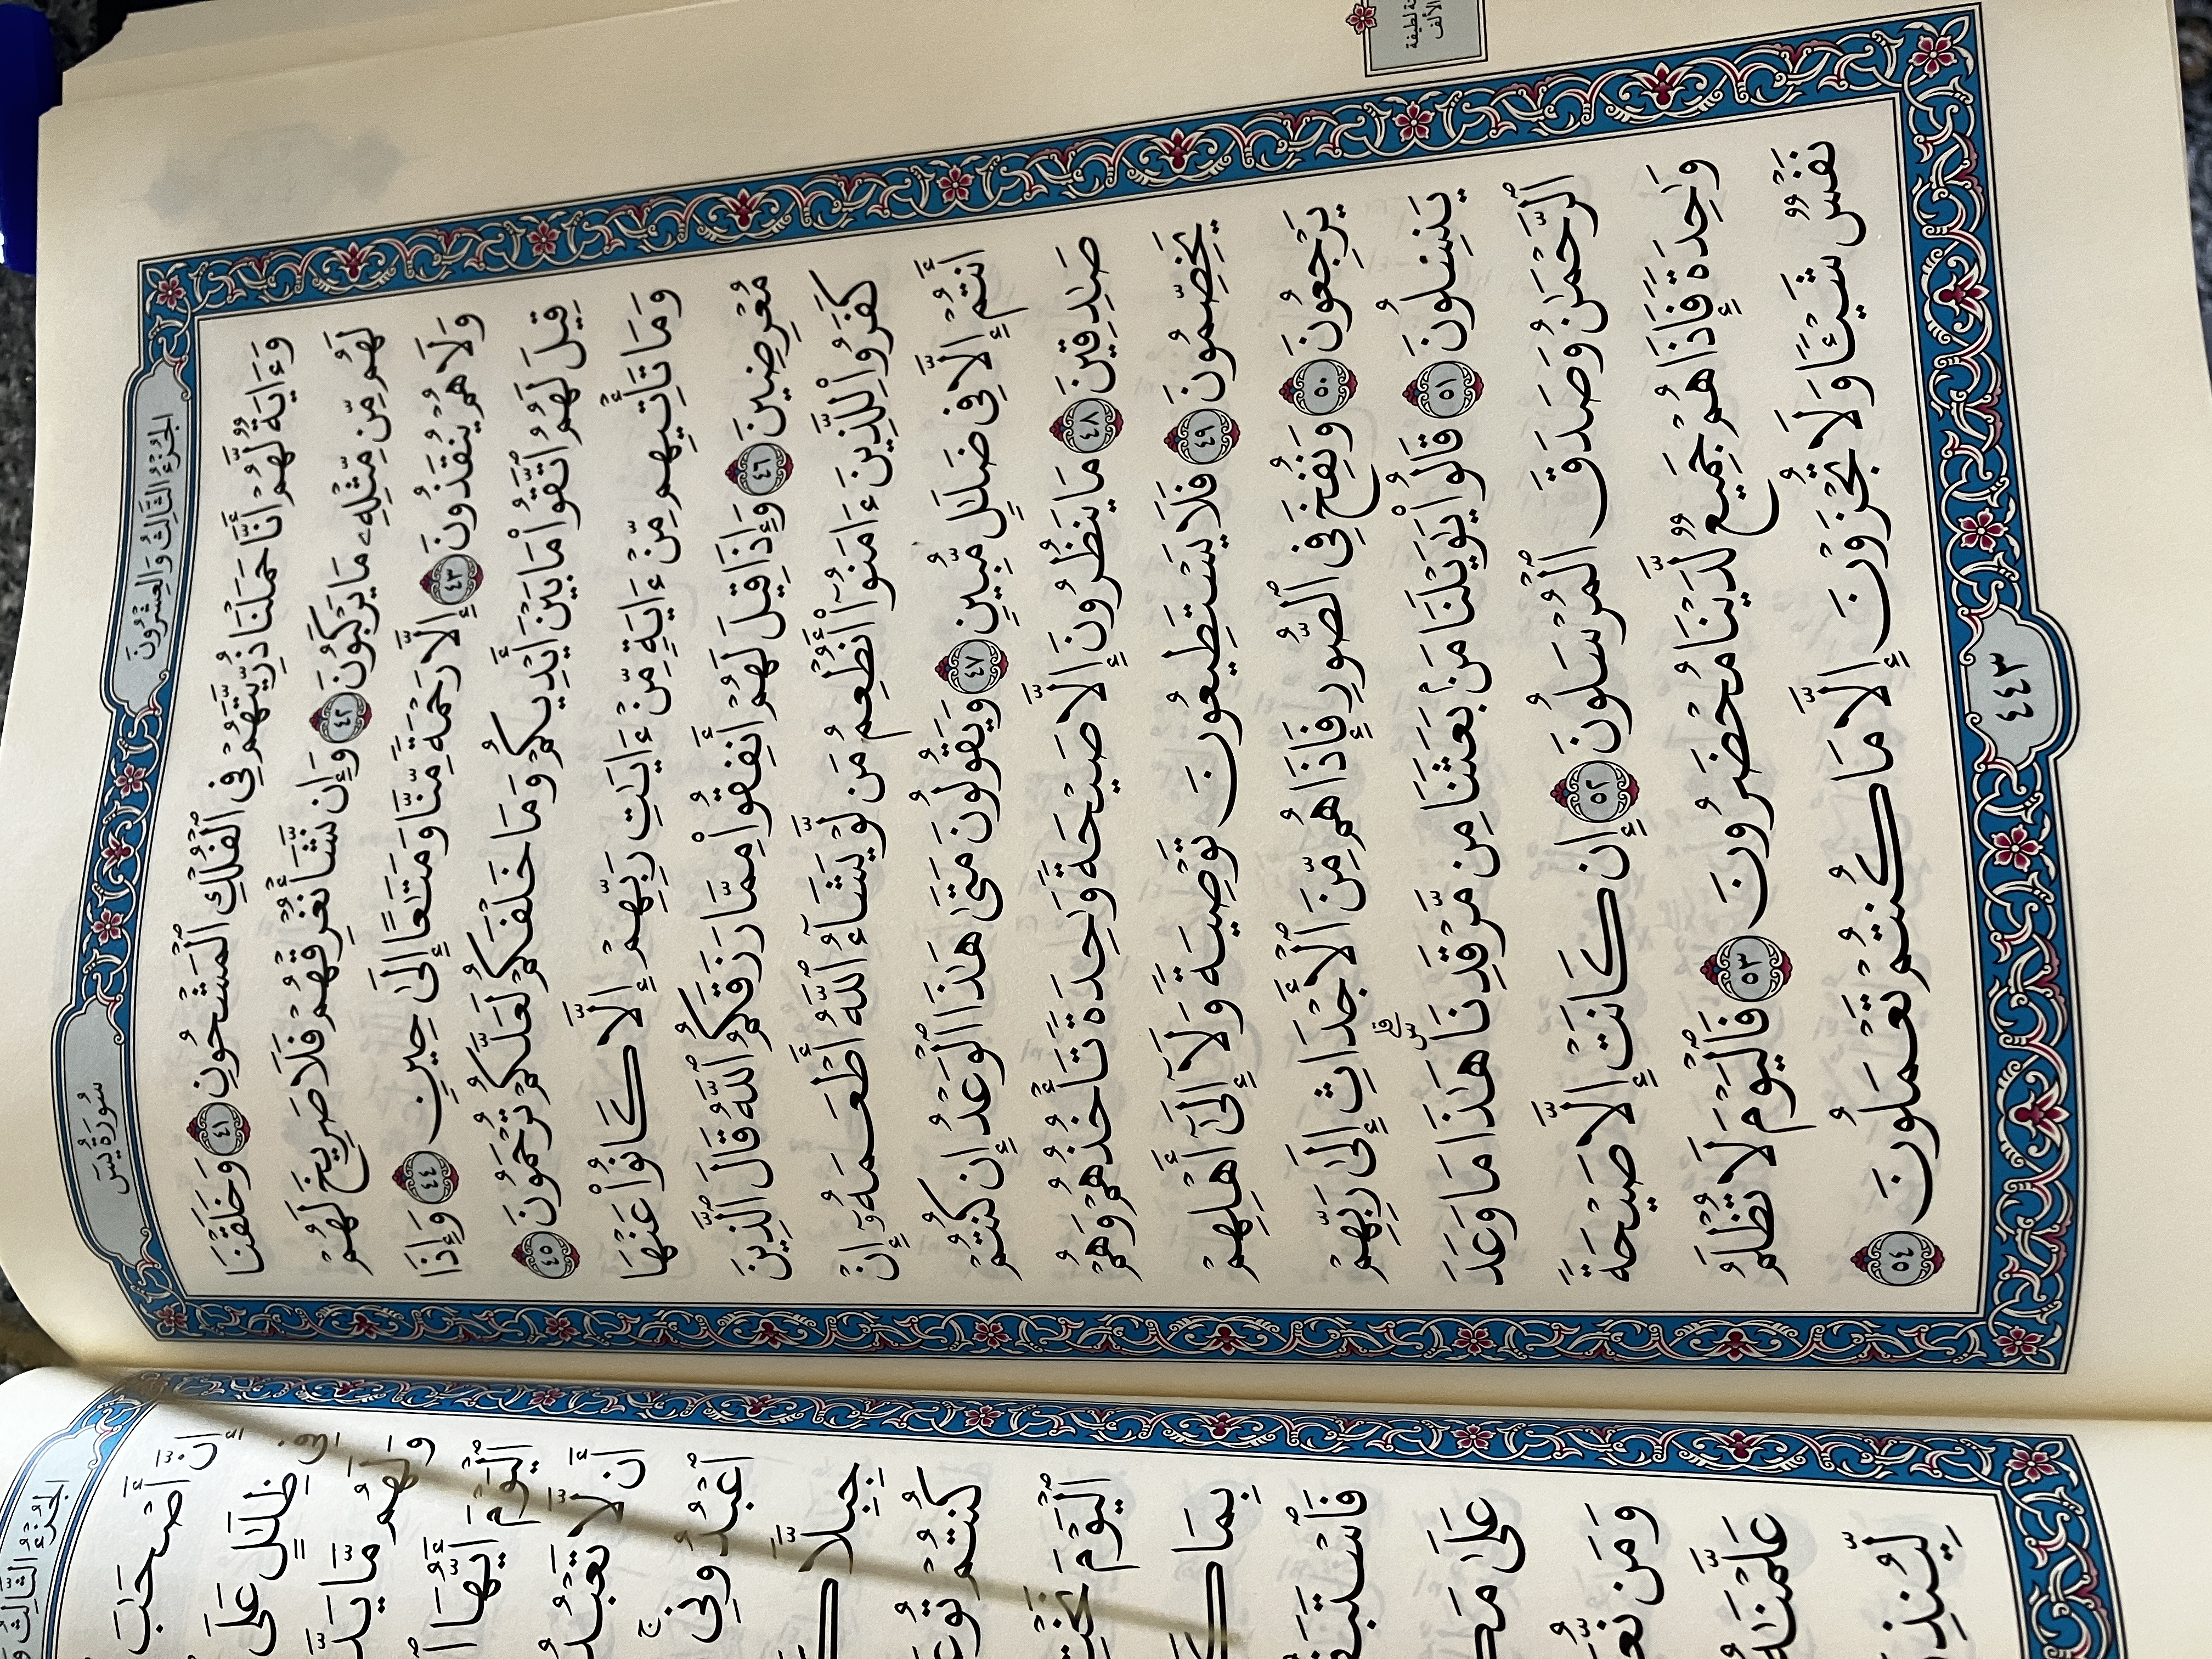 سُورَةُ يسٓ
الجُزْءُ الثَّالِثُ وَالعِشْرُونَ
وَءَايَةٌ لَّهُمْ أَنَّا حَمَلْنَا ذُرِّيَّتَهُمْ فِى ٱلْفُلْكِ ٱلْمَشْحُونِ ٤١ وَخَلَقْنَا
لَهُم مِّن مِّثْلِهِۦ مَا يَرْكَبُونَ ٤٢ وَإِن نَّشَأْ نُغْرِقْهُمْ فَلَا صَرِيخَ لَهُمْ
وَلَا هُمْ يُنقَذُونَ ٤٣ إِلَّا رَحْمَةً مِّنَّا وَمَتَٰعًا إِلَىٰ حِينٍ ٤٤ وَإِذَا
قِيلَ لَهُمُ ٱتَّقُوا۟ مَا بَيْنَ أَيْدِيكُمْ وَمَا خَلْفَكُمْ لَعَلَّكُمْ تُرْحَمُونَ ٤٥
وَمَا تَأْتِيهِم مِّنْ ءَايَةٍ مِّنْ ءَايَٰتِ رَبِّهِمْ إِلَّا كَانُوا۟ عَنْهَا
مُعْرِضِينَ ٤٦ وَإِذَا قِيلَ لَهُمْ أَنفِقُوا۟ مِمَّا رَزَقَكُمُ ٱللَّهُ قَالَ ٱلَّذِينَ
كَفَرُوا۟ لِلَّذِينَ ءَامَنُوٓا۟ أَنُطْعِمُ مَن لَّوْ يَشَآءُ ٱللَّهُ أَطْعَمَهُۥٓ إِنْ
أَنتُمْ إِلَّا فِى ضَلَٰلٍ مُّبِينٍ ٤٧ وَيَقُولُونَ مَتَىٰ هَٰذَا ٱلْوَعْدُ إِن كُنتُمْ
صَٰدِقِينَ ٤٨ مَا يَنظُرُونَ إِلَّا صَيْحَةً وَٰحِدَةً تَأْخُذُهُمْ وَهُمْ
يَخِصِّمُونَ ٤٩ فَلَا يَسْتَطِيعُونَ تَوْصِيَةً وَلَآ إِلَىٰٓ أَهْلِهِمْ
يَرْجِعُونَ ٥٠ وَنُفِخَ فِى ٱلصُّورِ فَإِذَا هُم مِّنَ ٱلْأَجْدَاثِ إِلَىٰ رَبِّهِمْ
يَنسِلُونَ ٥١ قَالُوا۟ يَٰوَيْلَنَا مَنۢ بَعَثَنَا مِن مَّرْقَدِنَا هَٰذَا مَا وَعَدَ
ٱلرَّحْمَٰنُ وَصَدَقَ ٱلْمُرْسَلُونَ ٥٢ إِن كَانَتْ إِلَّا صَيْحَةً
وَٰحِدَةً فَإِذَا هُمْ جَمِيعٌ لَّدَيْنَا مُحْضَرُونَ ٥٣ فَٱلْيَوْمَ لَا تُظْلَمُ
نَفْسٌ شَيْـًٔا وَلَا تُجْزَوْنَ إِلَّا مَا كُنتُمْ تَعْمَلُونَ ٥٤
٤٤٣
لطيفة
الألف
إِنَّ أَصْحَٰبَ
ظِلَٰلٍ عَلَى
وَلَهُم مَّا
ٱلْيَوْمَ أَيُّهَا
أَن لَّا
ٱعْبُدُونِى
جِبِلًّا
كُنتُمْ
ٱلْيَوْمَ
بِمَا
عَلَىٰ
وَمَن